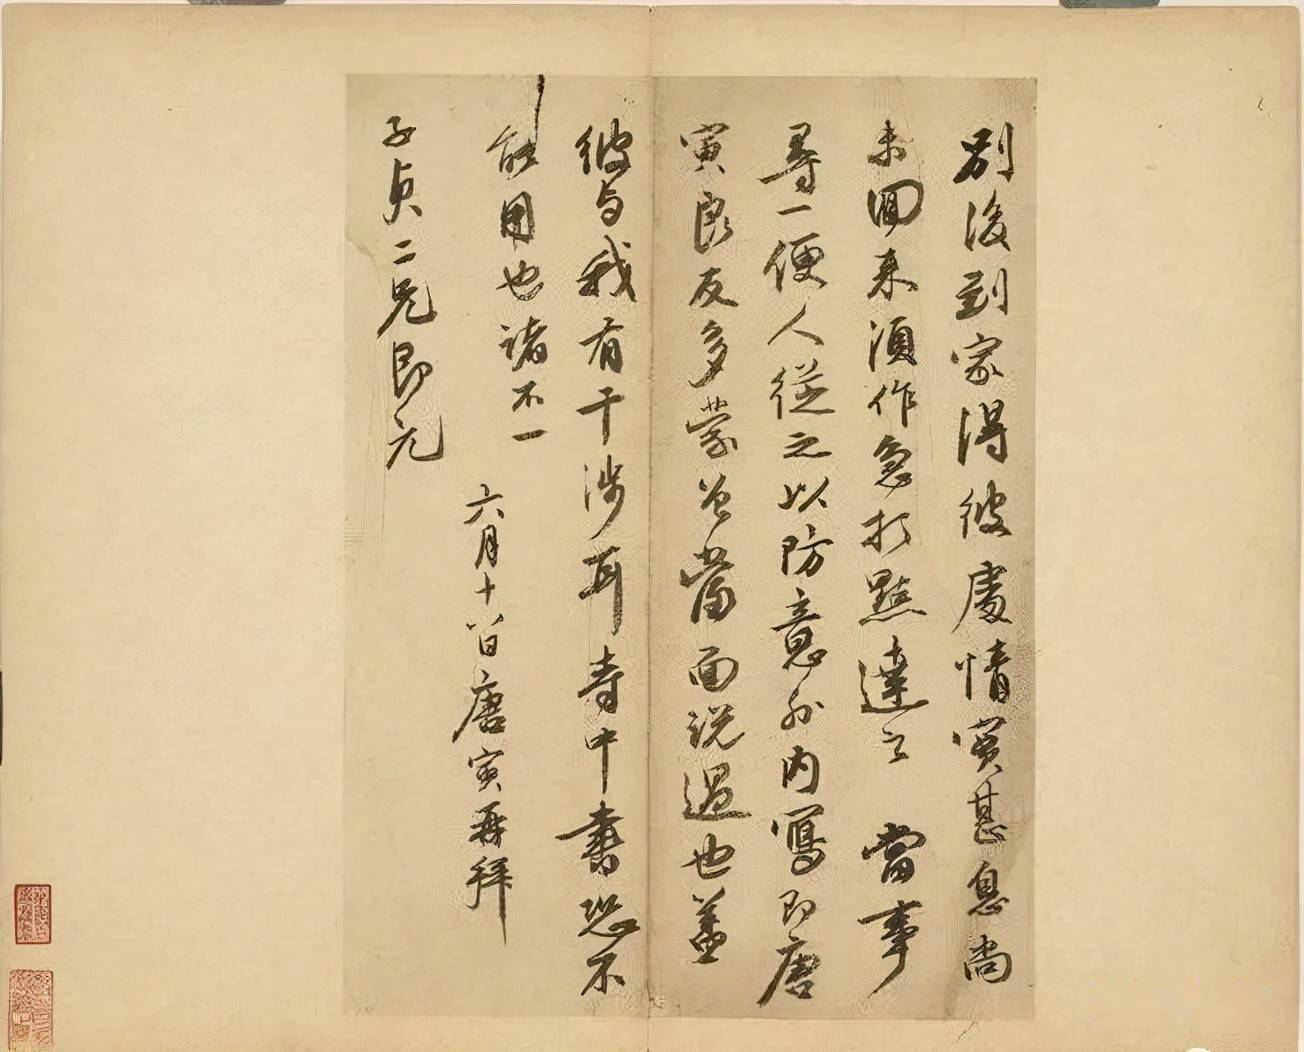 別後到家得彼處情實甚息尚
未回來須作急打點達之 當事
尋一便人從之以防意外內寫即唐
寅良友多蒙公當面說過也蓋
彼与我有干涉耳寿中書恐不
能用也諸不一
六月十八日唐寅再拜
子貞二兄即元